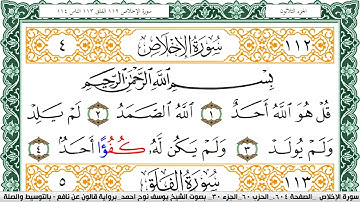 الجزء الثلاثون
سورة الإخلاص ١١٢ الفلق ١١٣ الناس ١١٤
١١٢ سُورَةُ الإِخْلَاصِ ٤
بِسْمِ اللَّهِ الرَّحْمَٰنِ الرَّحِيمِ
قُلْ هُوَ اللَّهُ أَحَدٌ ١ اللَّهُ الصَّمَدُ ٢ لَمْ يَلِدْ
وَلَمْ يُولَدْ ٣ وَلَمْ يَكُن لَّهُ كُفُؤًا أَحَدٌ ٤
١١٣ سُورَةُ الفَلَقِ ٥
سورة الإخلاص - الصفحة ٦٠٤ - الحزب ٦٠ - الجزء ٣٠ - بصوت الشيخ يوسف نوح احمد - برواية قالون عن نافع - بالتوسيط والصلة